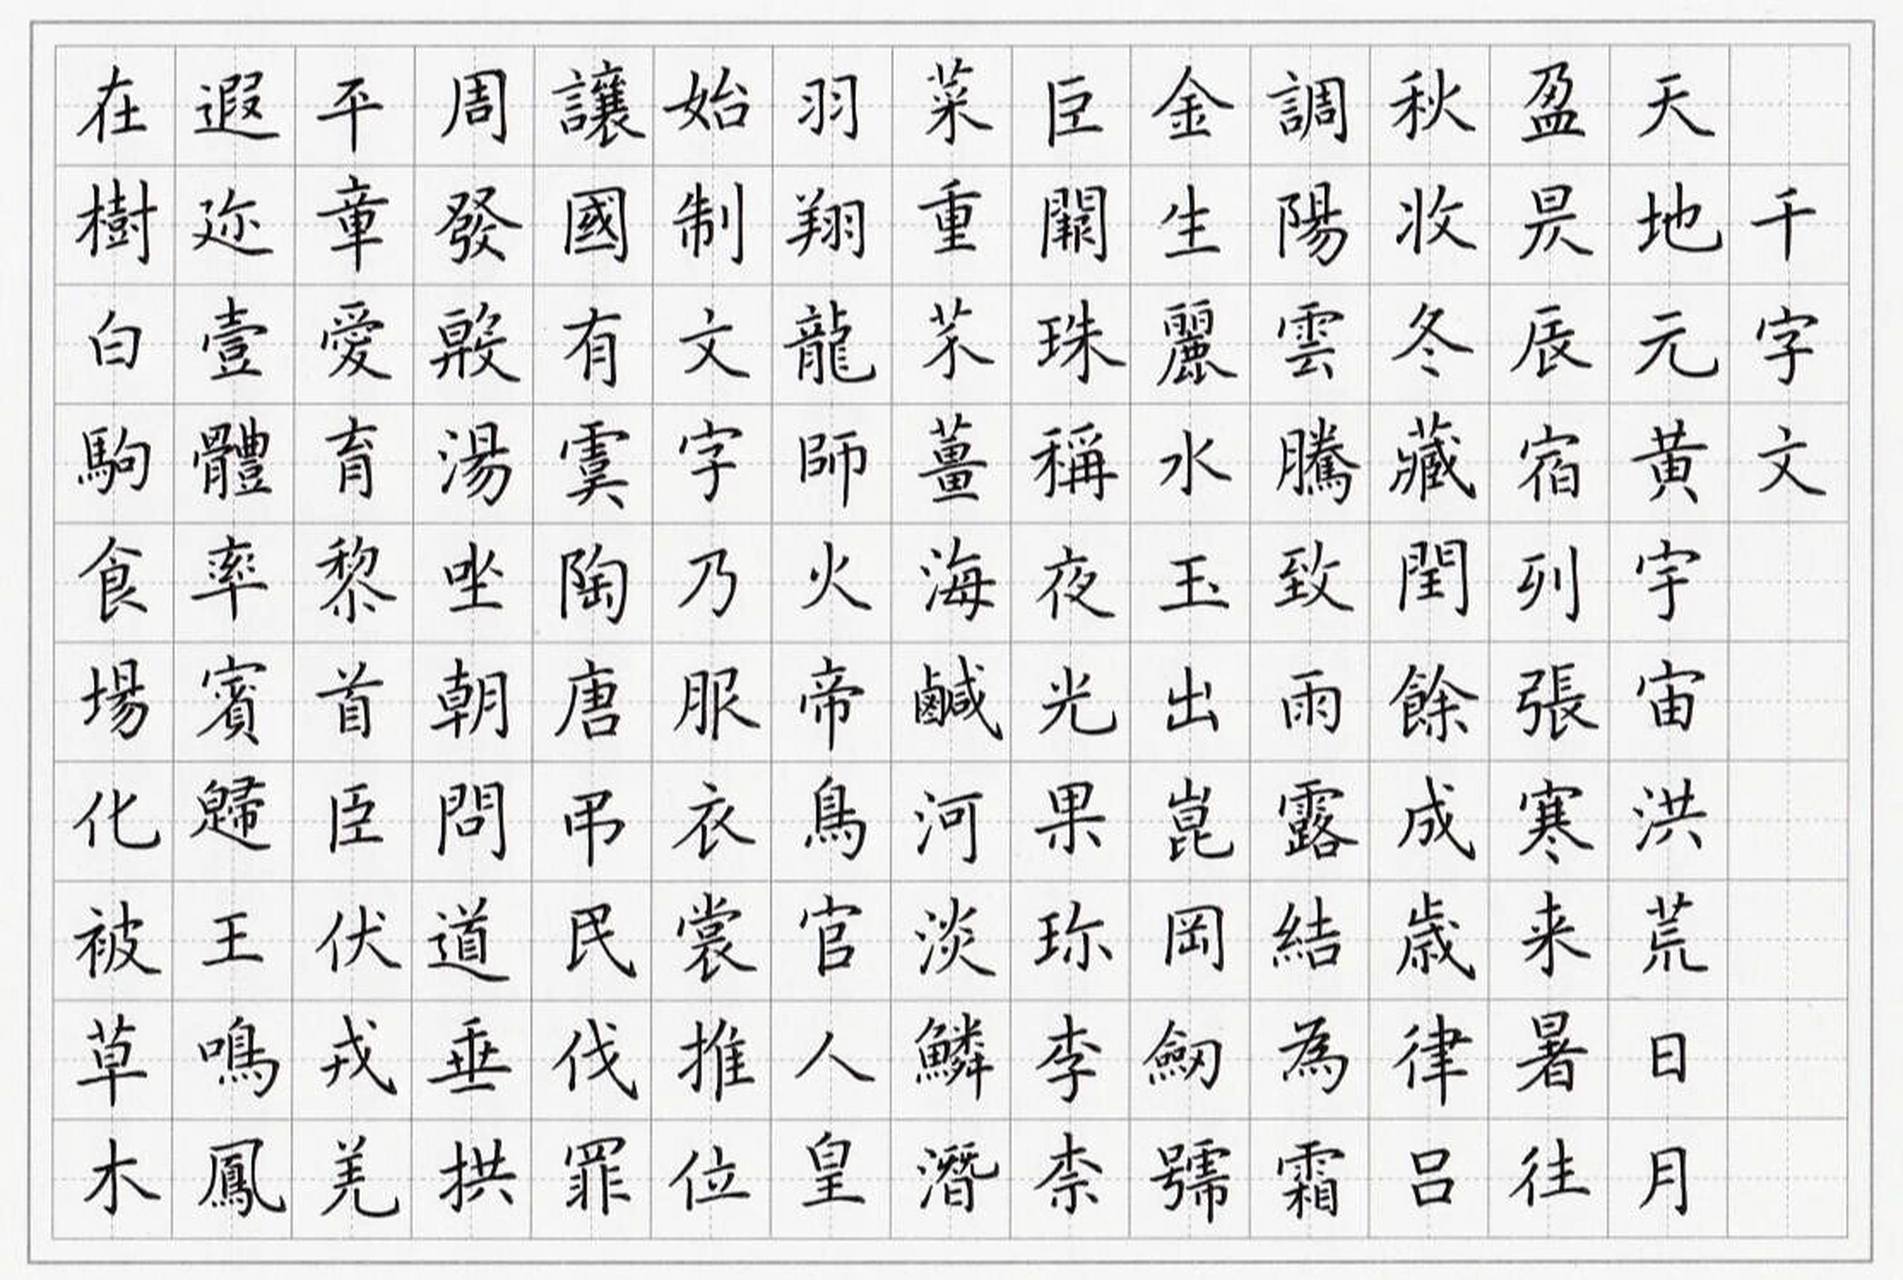 千字文
天地元黄宇宙洪荒日月
盈昃辰宿列張寒来暑往
秋收冬藏閏餘成歳律呂
調陽雲騰致雨露結為霜
金生麗水玉出崑岡劒號
巨闕珠稱夜光果珎李柰
菜重芥薑海鹹河淡鱗潛
羽翔龍師火帝鳥官人皇
始制文字乃服衣裳推位
讓國有虞陶唐弔民伐罪
周發殷湯坐朝問道垂拱
平章愛育黎首臣伏戎羌
遐迩壹體率賓歸王鳴鳳
在樹白駒食場化被草木